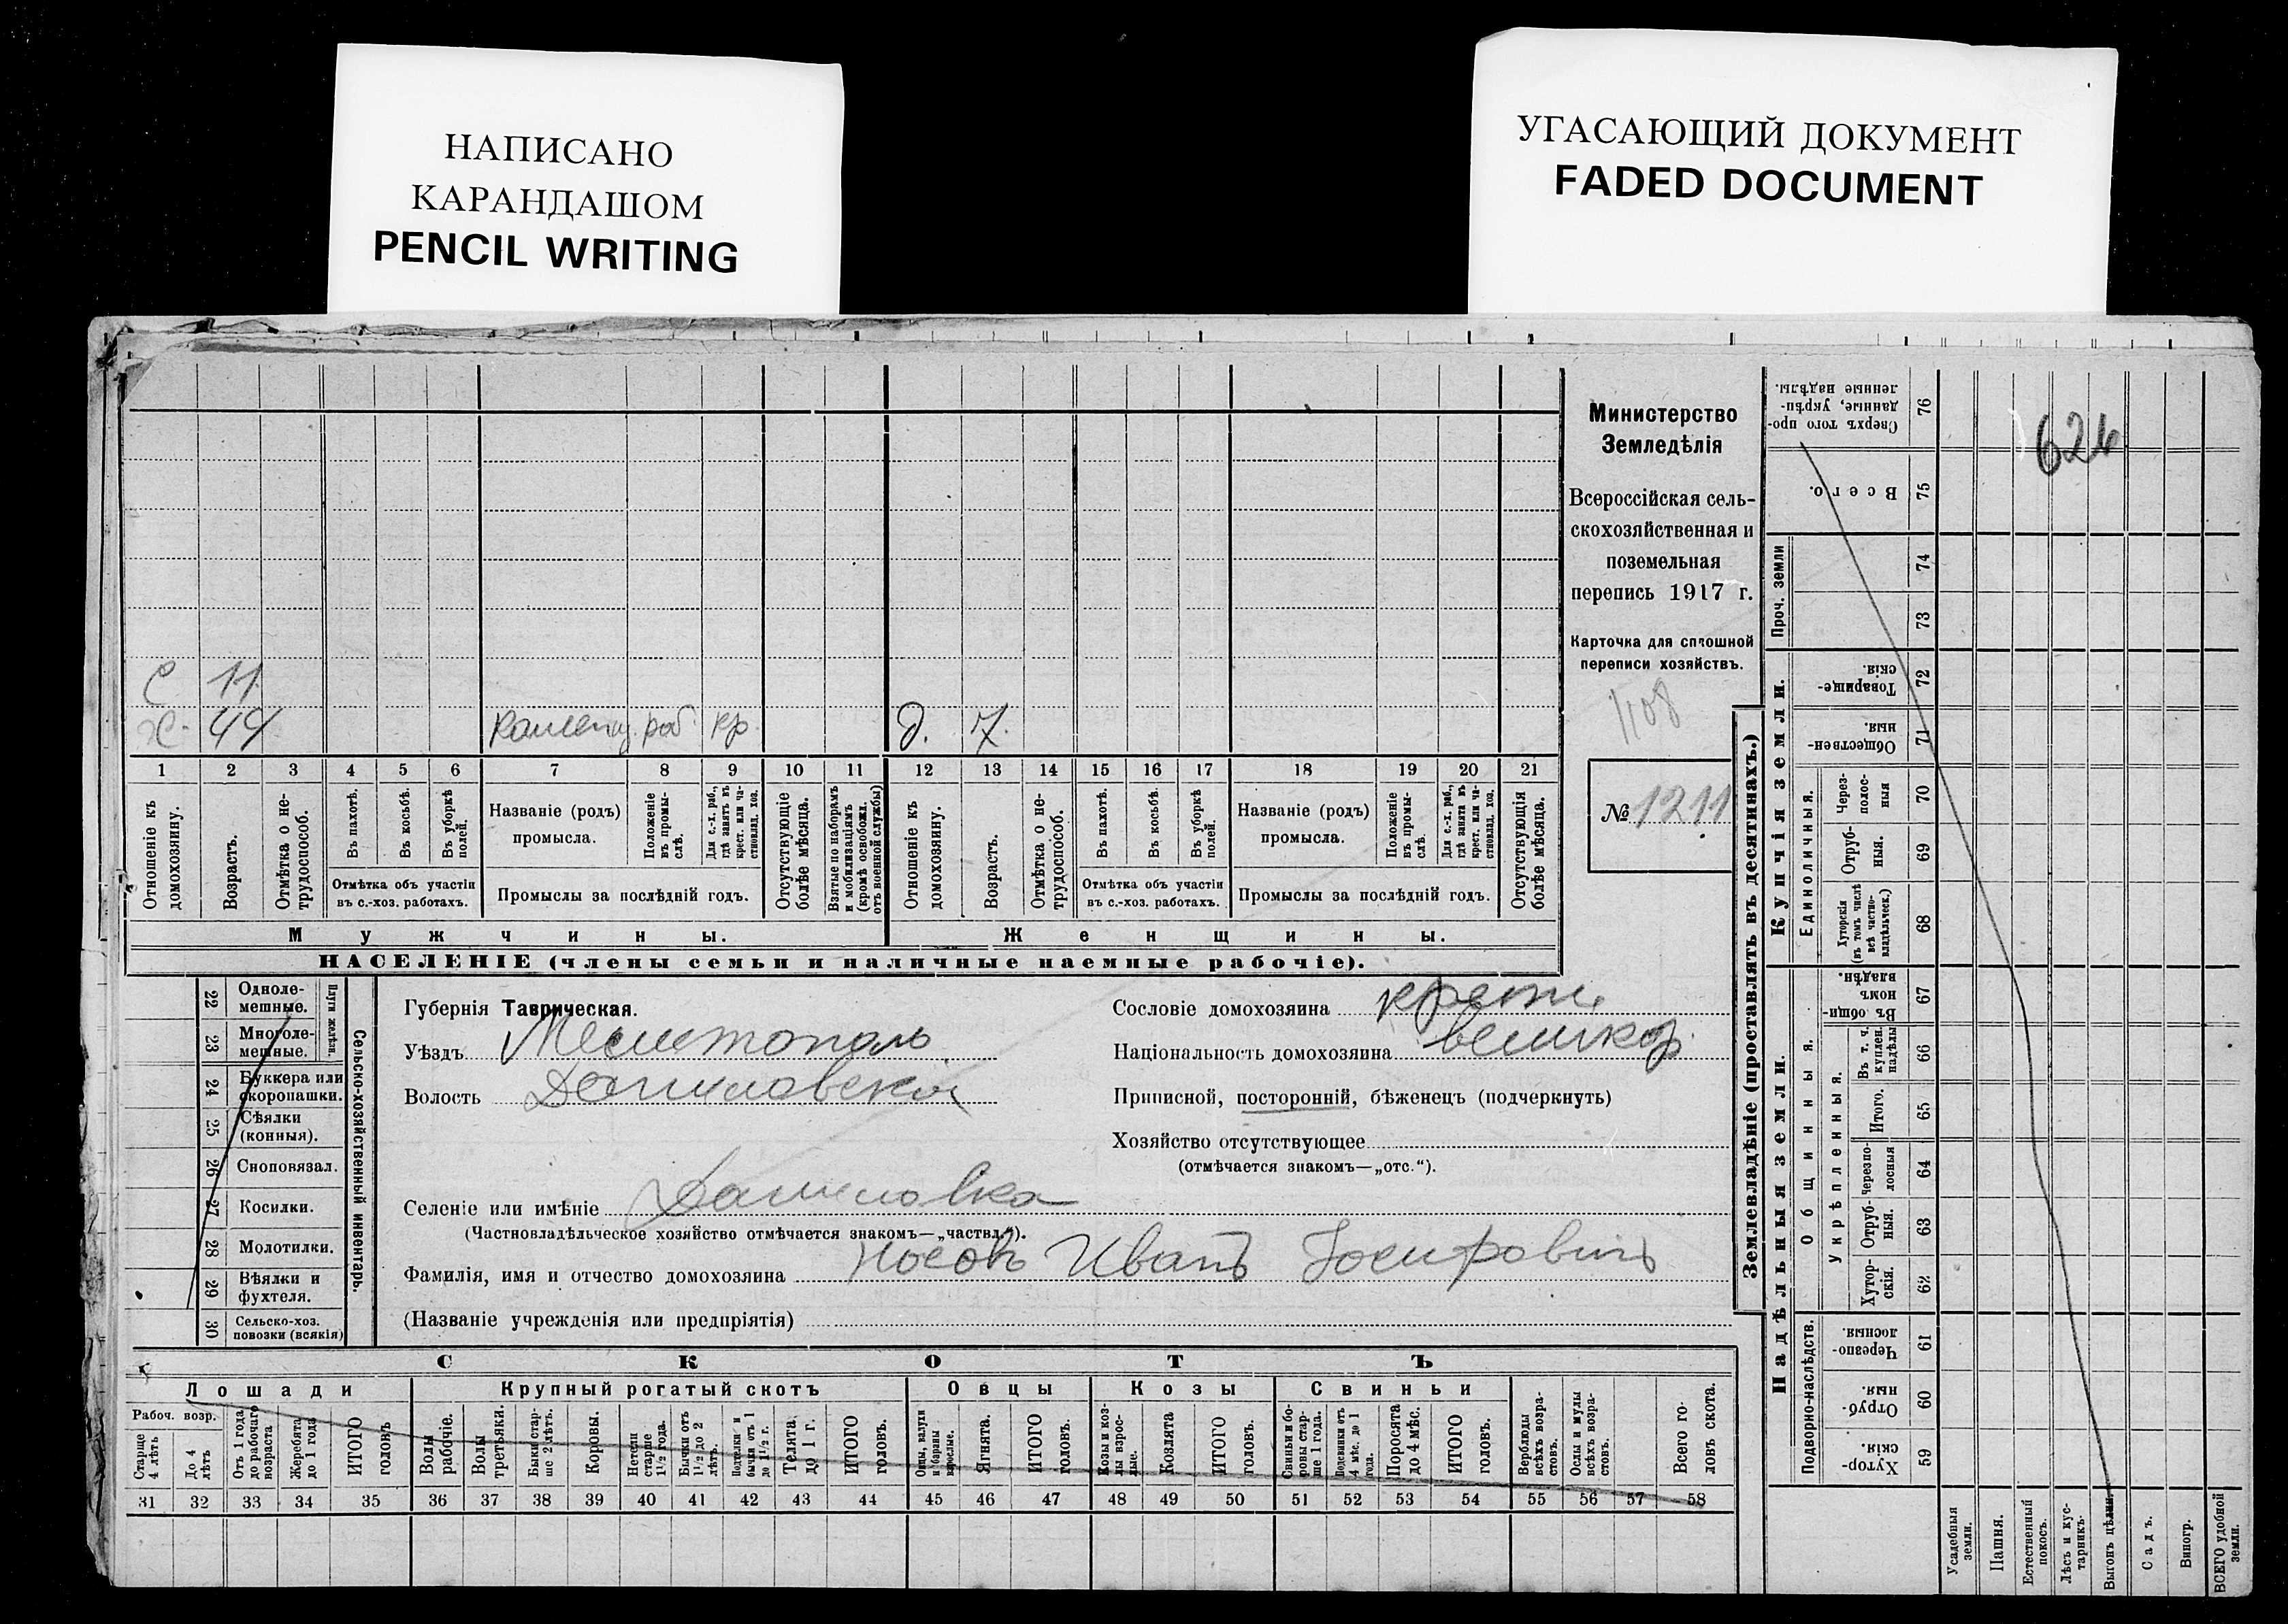 НАПИСАНО
КАРАНДАШОМ
PENCIL WRITING
УГАСАЮЩИЙ ДОКУМЕНТ
FADED DOCUMENT
с 11
х. 44 раб. кр. д. 7.
1 2 3 4 5 6 7 8 9 10 11 12 13 14 15 16 17 18 19 20 21
Отношеніе къ домохозяину.
Возрастъ.
Отмѣтка о нетрудоспособ.
Въ пахотѣ.
Въ косьбѣ.
Въ уборкѣ полей.
Отмѣтка объ участіи въ с.-хоз. работахъ.
Названіе (родъ) промысла.
Положеніе въ промыслѣ.
Для с.-х. раб., гдѣ занятъ въ крест. или частновлад. хоз.
Промыслы за послѣдній годъ.
Отсутствующіе болѣе мѣсяца.
Взятые по наборамъ и мобилизаціямъ (кромѣ освобожд. отъ военной службы)
Отношеніе къ домохозяину.
Возрастъ.
Отмѣтка о нетрудоспособ.
Въ пахотѣ.
Въ косьбѣ.
Въ уборкѣ полей.
Отмѣтка объ участіи въ с.-хоз. работахъ.
Названіе (родъ) промысла.
Положеніе въ промыслѣ.
Для с.-х. раб., гдѣ занята въ крест. или частновлад. хоз.
Промыслы за послѣдній годъ.
Отсутствующія болѣе мѣсяца.
Мужчины. Женщины.
НАСЕЛЕНІЕ (члены семьи и наличные наемные рабочіе).
Министерство
Земледѣлія
Всероссійская сель-
скохозяйственная и
поземельная
перепись 1917 г.
Карточка для сплошной
переписи хозяйствъ.
1108
№ 1211
22 Одноле-
мешные.
23 Многоле-
мешные.
Плуги желѣзн.
24 Буккера или
скоропашки.
25 Сѣялки
(конныя).
26 Сноповязал.
27 Косилки.
28 Молотилки.
29 Вѣялки и
фухтеля.
30 Сельско-хоз.
повозки (всякія)
Сельско-хозяйственный инвентарь.
Губернія Таврическая.
Уѣздъ Мелитополь
Волость Даниловской
Селеніе или имѣніе Даниловка
(Частновладѣльческое хозяйство отмѣчается знакомъ—„частвл.“).
Фамилія, имя и отчество домохозяина Носовъ Иванъ Іосифовичъ
(Названіе учрежденія или предпріятія)
Сословіе домохозяина крестн.
Національность домохозяина великор.
Приписной, посторонній, бѣженецъ (подчеркнуть)
Хозяйство отсутствующее
(отмѣчается знакомъ—„отс.“).
СКОТЪ
Лошади Крупный рогатый скотъ Овцы Козы Свиньи
Рабоч. возр.
Старше 4 лѣтъ
До 4 лѣтъ
Отъ 1 года до рабочаго возраста
Жеребята до 1 года
ИТОГО головъ
Волы рабочіе.
Волы третьяки.
Быки старше 2 лѣтъ.
Коровы.
Нетели старше 1½ года.
Бычки отъ 1½ до 2 лѣтъ.
Подтелки и бычки отъ 1 до 1½ г.
Телята до 1 г.
ИТОГО головъ.
Овцы, валухи и бараны взрослые.
Ягнята.
ИТОГО головъ.
Козы и козлы взрослые.
Козлята
ИТОГО головъ.
Свиньи и боровы старше 1 года.
Подсвинки отъ 4 мѣс. до 1 года.
Поросята до 4 мѣс.
ИТОГО головъ.
Верблюды всѣхъ возрастовъ.
Ослы и мулы всѣхъ возрастовъ.
Всего головъ скота.
31 32 33 34 35 36 37 38 39 40 41 42 43 44 45 46 47 48 49 50 51 52 53 54 55 56 57 58
Землевладѣніе (проставлять въ десятинахъ.)
Купчія земли.
Надѣльныя земли.
Проч. земли
Единоличныя.
Общинныя.
Укрѣпленныя.
Подворно-наслѣдств.
Сверхъ того проданные, укрѣпленные надѣлы. 76
Всего. 75
74
73
Товарищескія. 72
Общественныя. 71
Черезполосныя 70
Отрубныя. 69
Хуторскія (въ томъ числѣ всѣ частновладѣльческ.) 68
Въ общинномъ владѣн. 67
Въ т. ч. куплен. надѣлы 66
Итого. 65
Черезполосныя 64
Отрубныя. 63
Хуторскія. 62
Черезполосныя. 61
Отрубныя. 60
Хуторскія. 59
Усадебныя земли.
Пашня.
Естественный покосъ.
Лѣсъ и кустарникъ.
Выгонъ цѣлин.
Садъ.
Виногр.
ВСЕГО удобной земли.
626